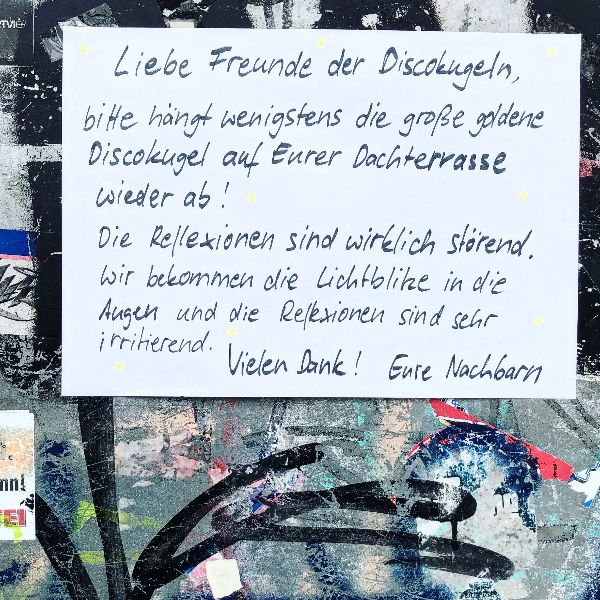 Liebe Freunde der Discokugeln,
bitte hängt wenigstens die große goldene
Discokugel auf Eurer Dachterrasse
wieder ab!
Die Reflexionen sind wirklich störend.
Wir bekommen die Lichtblitze in die
Augen und die Reflexionen sind sehr
irritierend.
Vielen Dank! Eure Nachbarn